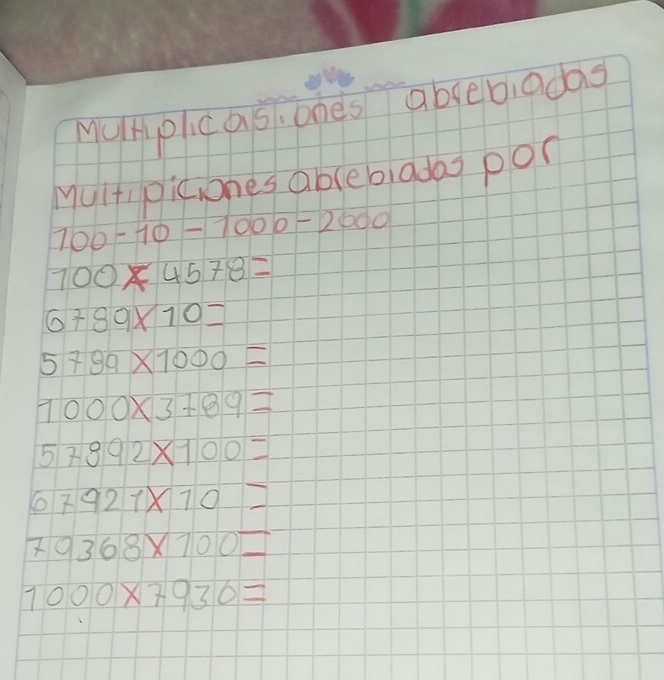 Multiplicasiones abrebiadas
Multipiciones abrebiadas por
100-10-1000-2000
100x4578=
6789x10=
5789x1000=
1000x3789=
57892x100=
67921x10=
79368x100=
1000x7936=